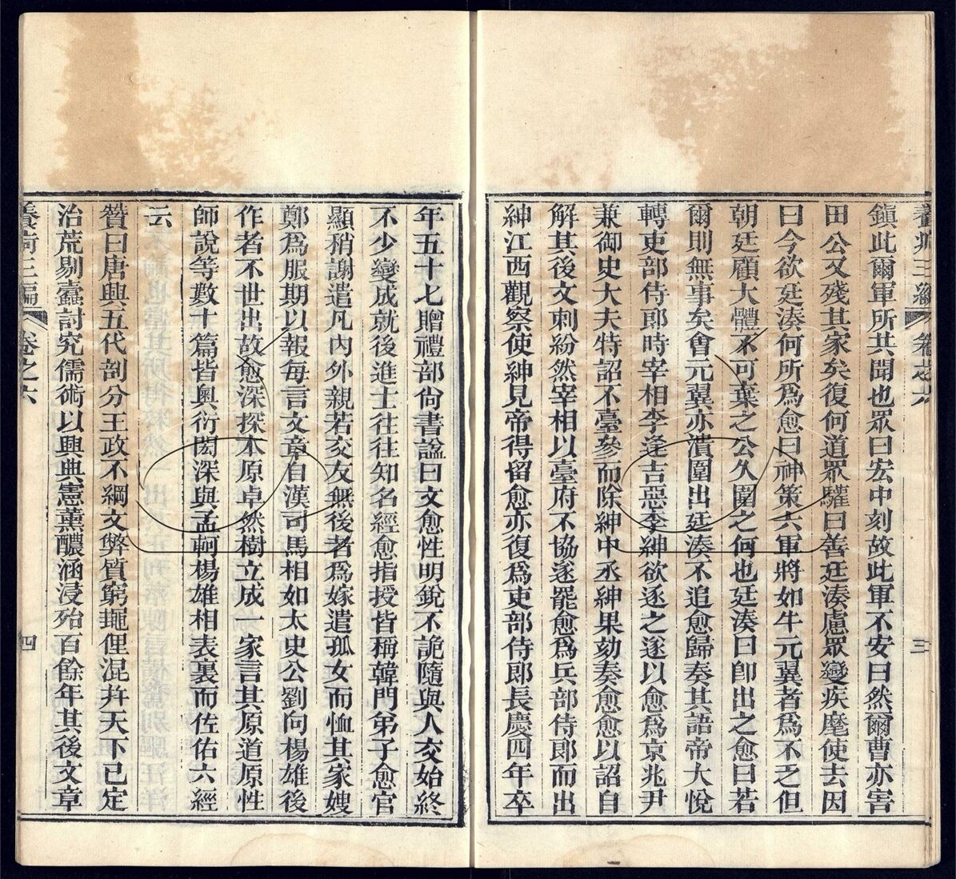 鎮此爾軍所共聞也眾曰宏中刻故此軍不安曰然爾曹亦害
田公又殘其家矣復何道眾讙曰善廷湊慮眾變疾麾使去因
曰今欲廷湊何所為愈曰神策六軍將如牛元翼者為不乏但
朝廷顧大體不可棄之公久圍之何也廷湊曰卽出之愈曰若
爾則無事矣會元翼亦潰圍出廷湊不追愈歸奏其語帝大悅
轉吏部侍郎時宰相李逢吉惡李紳欲逐之遂以愈為京兆尹
兼御史大夫特詔不臺參而除紳中丞紳果劾奏愈愈以詔自
解其後文刺紛然宰相以臺府不協遂罷愈為兵部侍郎而出
紳江西觀察使紳見帝得留愈亦復為吏部侍郎長慶四年卒
卷之六
三
年五十七贈禮部尚書諡曰文愈性明銳不詭隨與人交始終
不少變成就後進士往往知名經愈指授皆稱韓門弟子愈官
顯稍謝遣凡內外親若交友無後者為嫁遣孤女而恤其家嫂
鄭為服期以報每言文章自漢司馬相如太史公劉向楊雄後
作者不世出故愈深探本原卓然樹立成一家言其原道原性
師說等數十篇皆奧衍閎深與孟軻楊雄相表裏而佐佑六經
云
贊曰唐興五代剖分王政不綱文弊質窮䵷俚混幷天下已定
治荒剔蠹討究儒術以興典憲薰醲涵浸殆百餘年其後文章
三編
卷之六
四